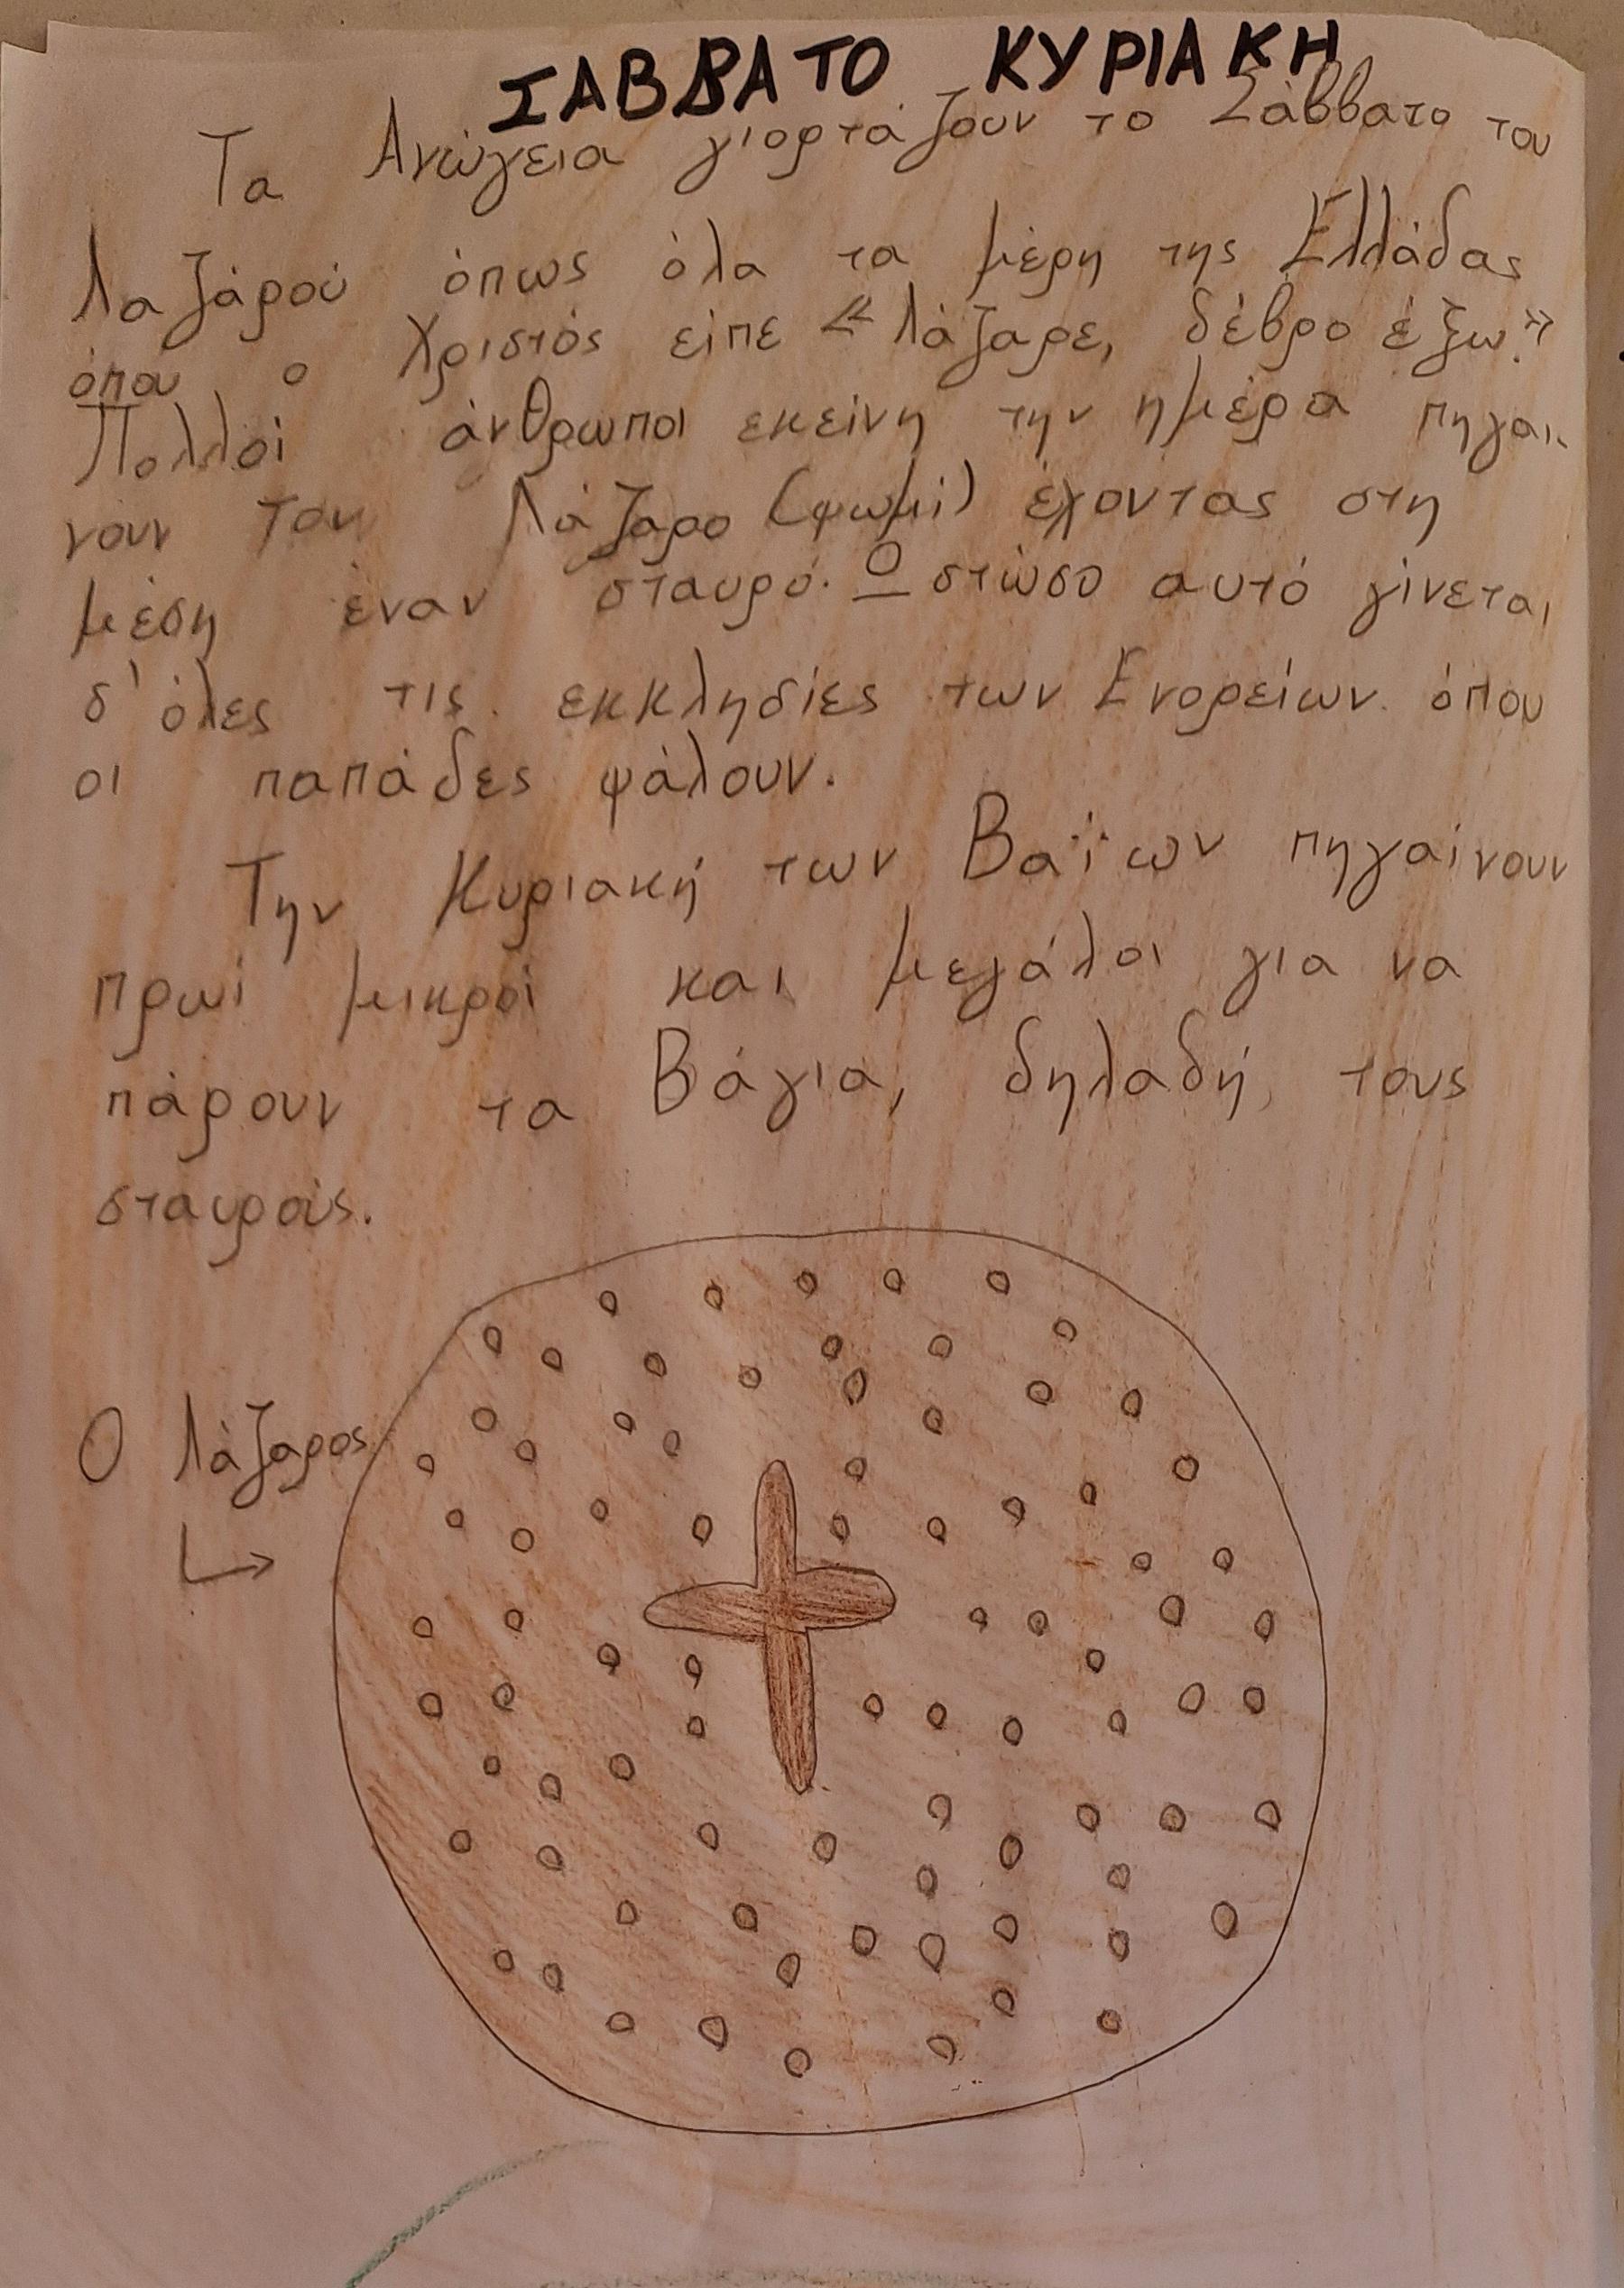 ΣΑΒΒΑΤΟ ΚΥΡΙΑΚΗ
Τα Ανώγεια γιορτάζουν το Σάββατο του
Λαζάρου όπως όλα τα μέρη της Ελλάδας
όπου ο Χριστός είπε «Λάζαρε, δέβρο έξω.»
Πολλοί άνθρωποι εκείνη την ημέρα πηγαι-
νουν τον Λάζαρο (ψωμί) έχοντας στη
μέση έναν σταυρό. Ο στώσο αυτό γίνεται
σ' όλες τις εκκλησίες των Ενορείων όπου
οι παπάδες ψάλουν.
Την Κυριακή των Βαΐων πηγαίνουν
πρωί μικροί και μεγάλοι για να
πάρουν τα Βάγια, δηλαδή, τους
σταυρούς.
Ο Λάζαρος